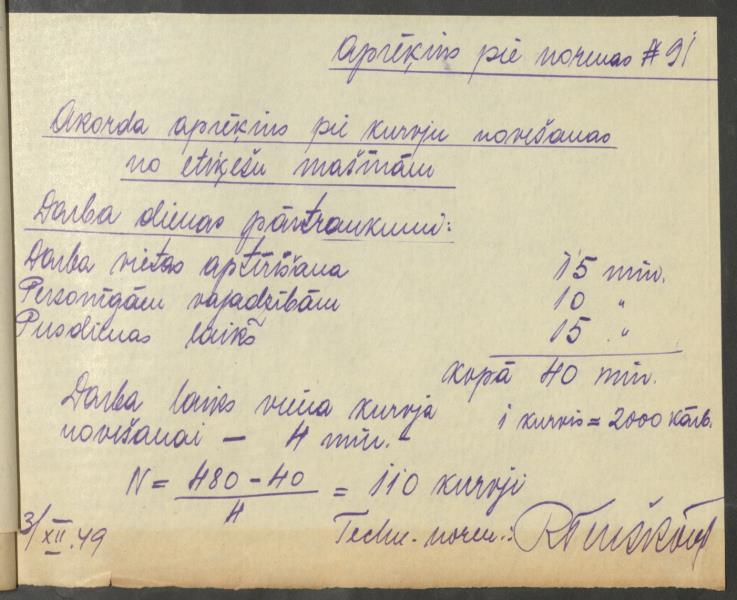 Aprēķins pie normas #91
Akorda aprēķins pie kurvju novešanas
no etiķešu mašīnām
Darba dienas pārtraukumi:
Darba vietas aptīrīšana 15 mīn.
Personīgām vajadzībām 10 "
Pusdienas laiks 15 "
kopā 40 mīn.
Darba laiks viena kurvja
novešanai – 4 mīn.
1 kurvis = 2000 kārb.
N = 480 – 40 / 4 = 110 kurvji
3/XII.49 Techn. norm.: